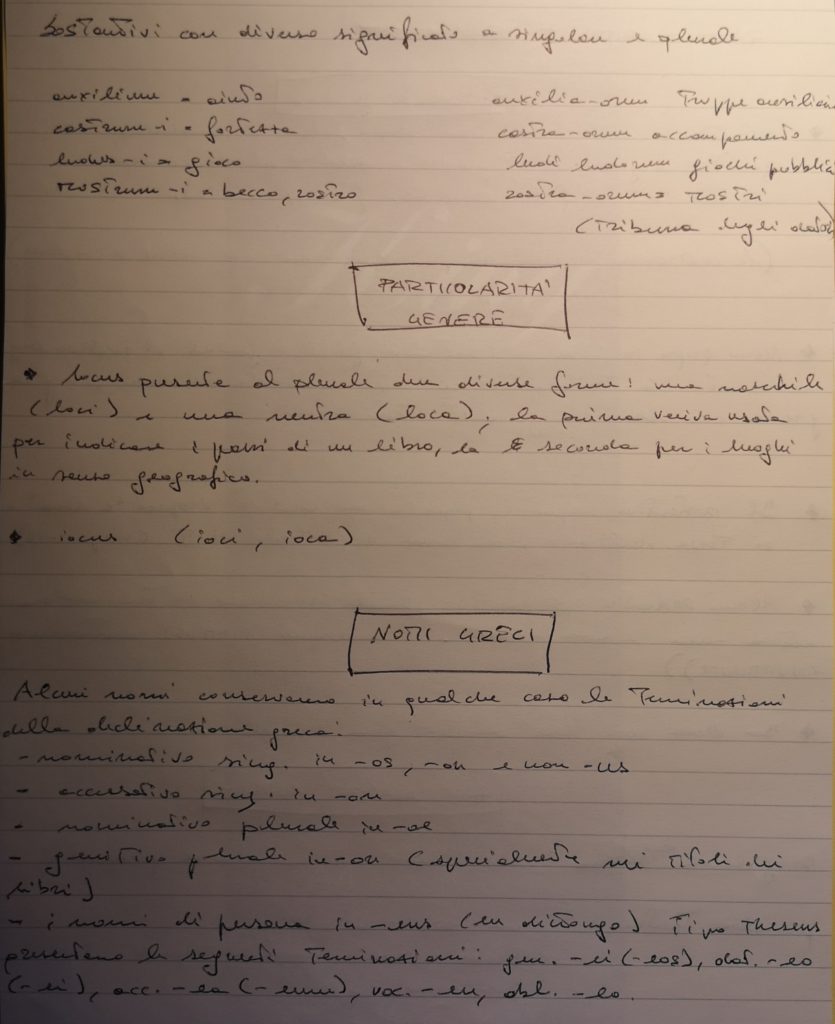 Sostantivi con diverso significato a singolare e plurale
auxilium = aiuto auxilia-orum Truppe ausiliarie
castrum-i = fortezza castra-orum accampamento
ludus-i = gioco ludi ludorum giochi pubblici
rostrum-i = becco, rostro rostra-orum = rostri
(Tribuna degli oratori)
PARTICOLARITA'
GENERE
locus presenta al plurale due diverse forme: una maschile
(loci) e una neutra (loca); la prima veniva usata
per indicare i passi di un libro, la seconda per i luoghi
in senso geografico.
iocus (ioci, ioca)
NOMI GRECI
Alcuni nomi conservano in qualche caso le Terminazioni
della declinazione greca:
- nominativo sing. in -os, -on e non -us
- accusativo sing. in -on
- nominativo plurale in -oe
- genitivo plurale in -on (specialmente nei Titoli dei
libri)
- i nomi di persona in -eus (eu dittongo) Tipo Theseus
presentano le seguenti Terminazioni: gen. -ei (-eos), dat. -eo
(-ei), acc. -ea (-eum), voc. -eu, abl. -eo.